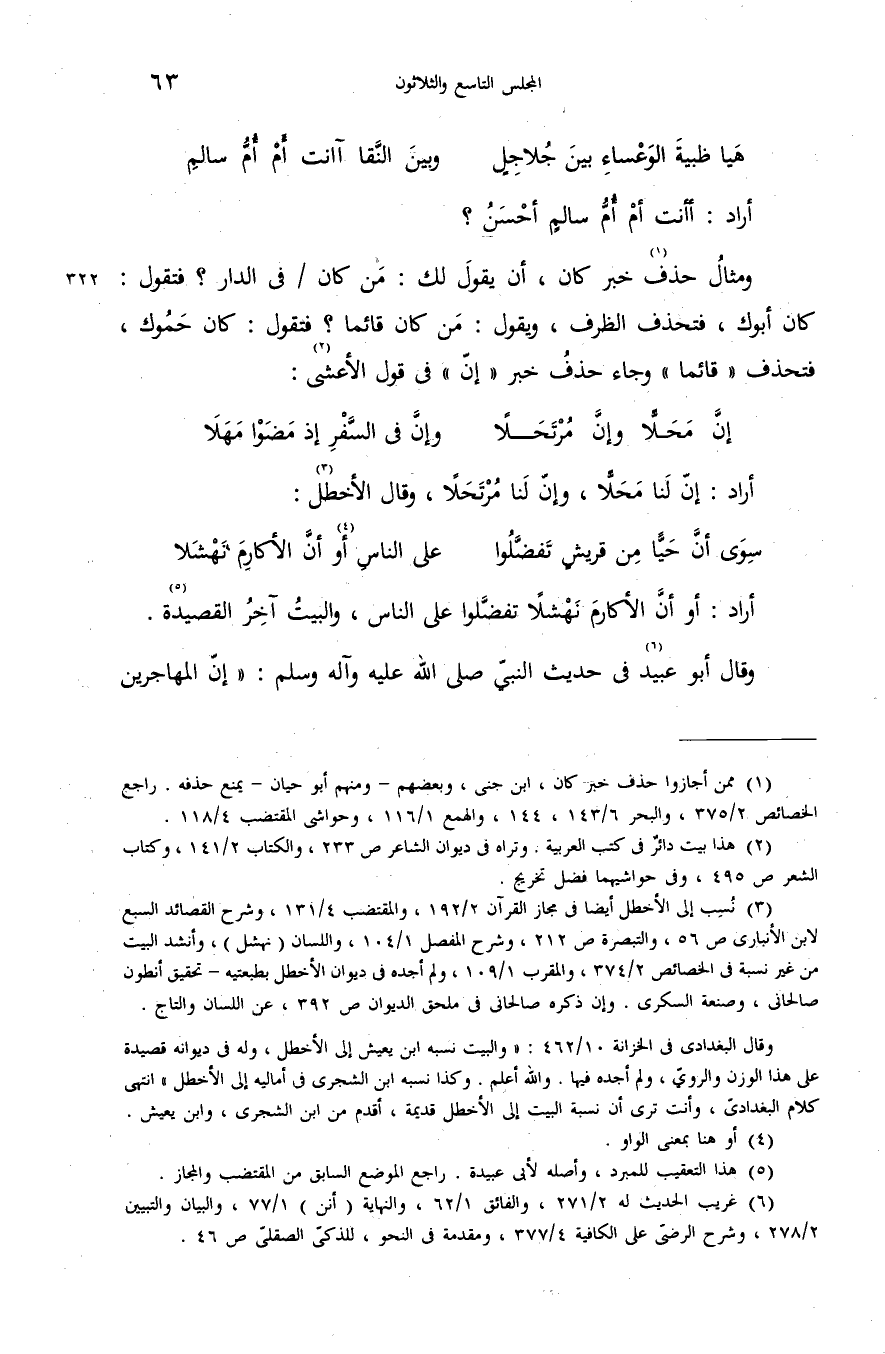 المجلس التاسع والثلاثون ٦٣
هَيا ظبيةَ الوَعْساءِ بينَ جُلاجِلٍ وبينَ النَّقا آانت أَمْ أُمُّ سالمِ
أراد : أأنت أمْ أُمُّ سالمٍ أحْسَنُ ؟
ومثالُ حذف (١) خبر كان ، أن يقولَ لك : مَن كان / فى الدار ؟ فتقول : ٣٢٢
كان أبوك ، فتحذف الظرف ، ويقول : مَن كان قائما ؟ فتقول : كان حَمُوك ،
فتحذف « قائما » وجاء حذفُ خبر « إنّ » فى قول الأعشى (٢) :
إنَّ مَحَـلًّا وإنَّ مُرْتَحَـــلًا وإنَّ فى السَّفْرِ إذ مَضَوْا مَهَلَا
أراد : إنّ لَنا مَحَلًّا ، وإنّ لَنا مُرْتَحَلًا ، وقال الأخطل (٣) :
سِوَى أنَّ حَيًّا مِن قريشٍ تَفضَّلُوا على الناسِ أو (٤) أنَّ الأكارِمَ نَهْشَلا
أراد : أو أنَّ الأكارمَ نَهْشلًا تفضَّلوا على الناس ، والبيتُ آخِرُ القصيدة (٥) .
وقال أبو عبيد (٦) فى حديث النبيّ صلى الله عليه وآله وسلم : « إنّ المهاجرين
(١) ممن أجازوا حذف خبر كان ، ابن جنى ، وبعضهم – ومنهم أبو حيان – يمنع حذفه . راجع
الخصائص ٣٧٥/٢ ، والبحر ١٤٣/٦ ، ١٤٤ ، والهمع ١١٦/١ ، وحواشى المقتضب ١١٨/٤ .
(٢) هذا بيت دائرٌ فى كتب العربية . وتراه فى ديوان الشاعر ص ٢٣٣ ، والكتاب ١٤١/٢ ، وكتاب
الشعر ص ٤٩٥ ، وفى حواشيهما فضل تخريج .
(٣) نُسِب إلى الأخطل أيضا فى مجاز القرآن ١٩٢/٢ ، والمقتضب ١٣١/٤ ، وشرح القصائد السبع
لابن الأنبارى ص ٥٦ ، والتبصرة ص ٢١٢ ، وشرح المفصل ١٠٤/١ ، واللسان ( نهشل ) ، وأنشد البيت
من غير نسبة فى الخصائص ٣٧٤/٢ ، والمقرب ١٠٩/١ ، ولم أجده فى ديوان الأخطل بطبعتيه – تحقيق أنطون
صالحانى ، وصنعة السكرى . وإن ذكره صالحانى فى ملحق الديوان ص ٣٩٢ ، عن اللسان والتاج .
وقال البغدادى فى الخزانة ٤٦٢/١٠ : « والبيت نسبه ابن يعيش إلى الأخطل ، وله فى ديوانه قصيدة
على هذا الوزن والرويّ ، ولم أجده فيها . والله أعلم . وكذا نسبه ابن الشجرى فى أماليه إلى الأخطل » انتهى
كلام البغدادىّ ، وأنت ترى أن نسبة البيت إلى الأخطل قديمة ، أقدم من ابن الشجرى ، وابن يعيش .
(٤) أو هنا بمعنى الواو .
(٥) هذا التعقيب للمبرد ، وأصله لأبى عبيدة . راجع الموضع السابق من المقتضب والمجاز .
(٦) غريب الحديث له ٢٧١/٢ ، والفائق ٦٢/١ ، والنهاية ( أنن ) ٧٧/١ ، والبيان والتبيين
٢٧٨/٢ ، وشرح الرضىّ على الكافية ٣٧٧/٤ ، ومقدمة فى النحو ، للذكىّ الصقلىّ ص ٤٦ .